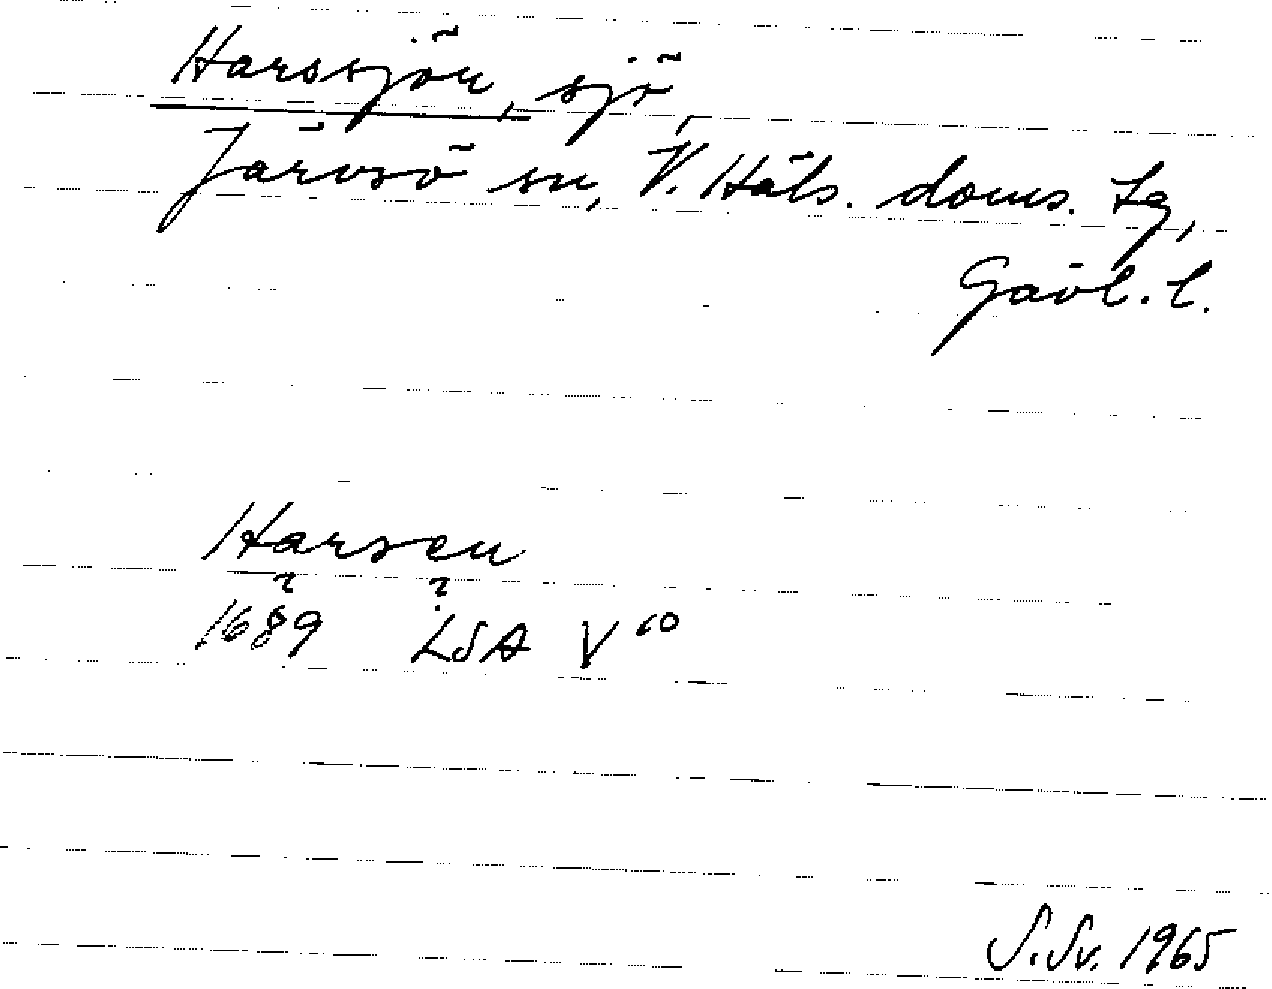 Harssjön, sjö,
Järvsö sn, V. Häls. doms. Lg,
Gävl. l.
Harsen
1689 LSA V 10
S. Sv. 1965